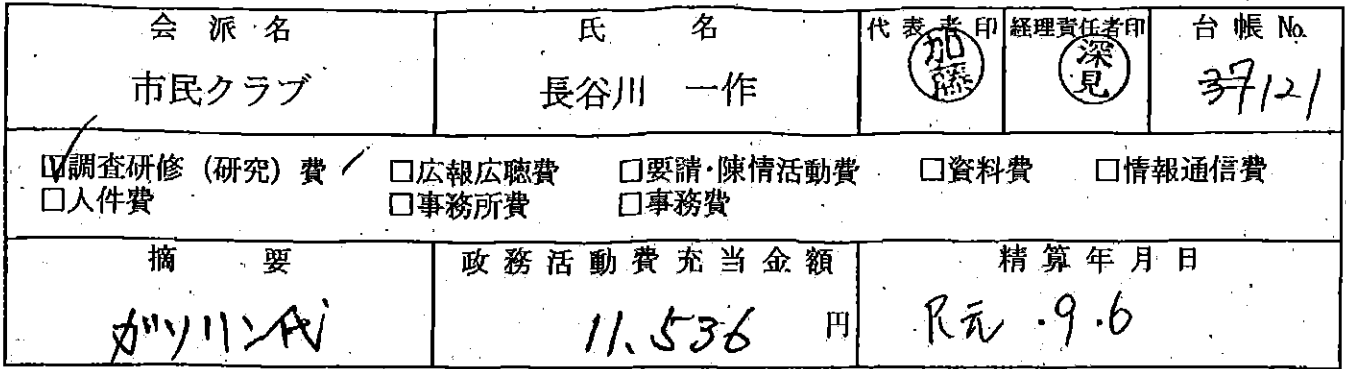 会派名 氏名 代表者印 経理責任者印 台帳 No.
市民クラブ 長谷川 一作 加藤 深見 37121
☑調査研修（研究）費 □広報広聴費 □要請・陳情活動費 □資料費 □情報通信費
□人件費 □事務所費 □事務費
摘要 政務活動費充当金額 精算年月日
ガソリン代 11,536 円 R元.9.6